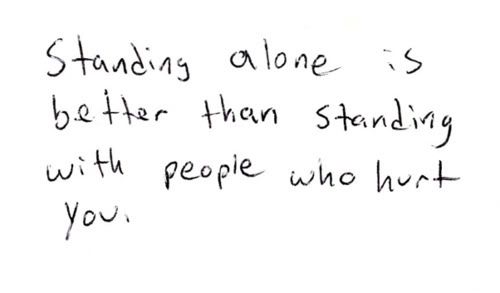 Standing alone is
better than standing
with people who hurt
you.